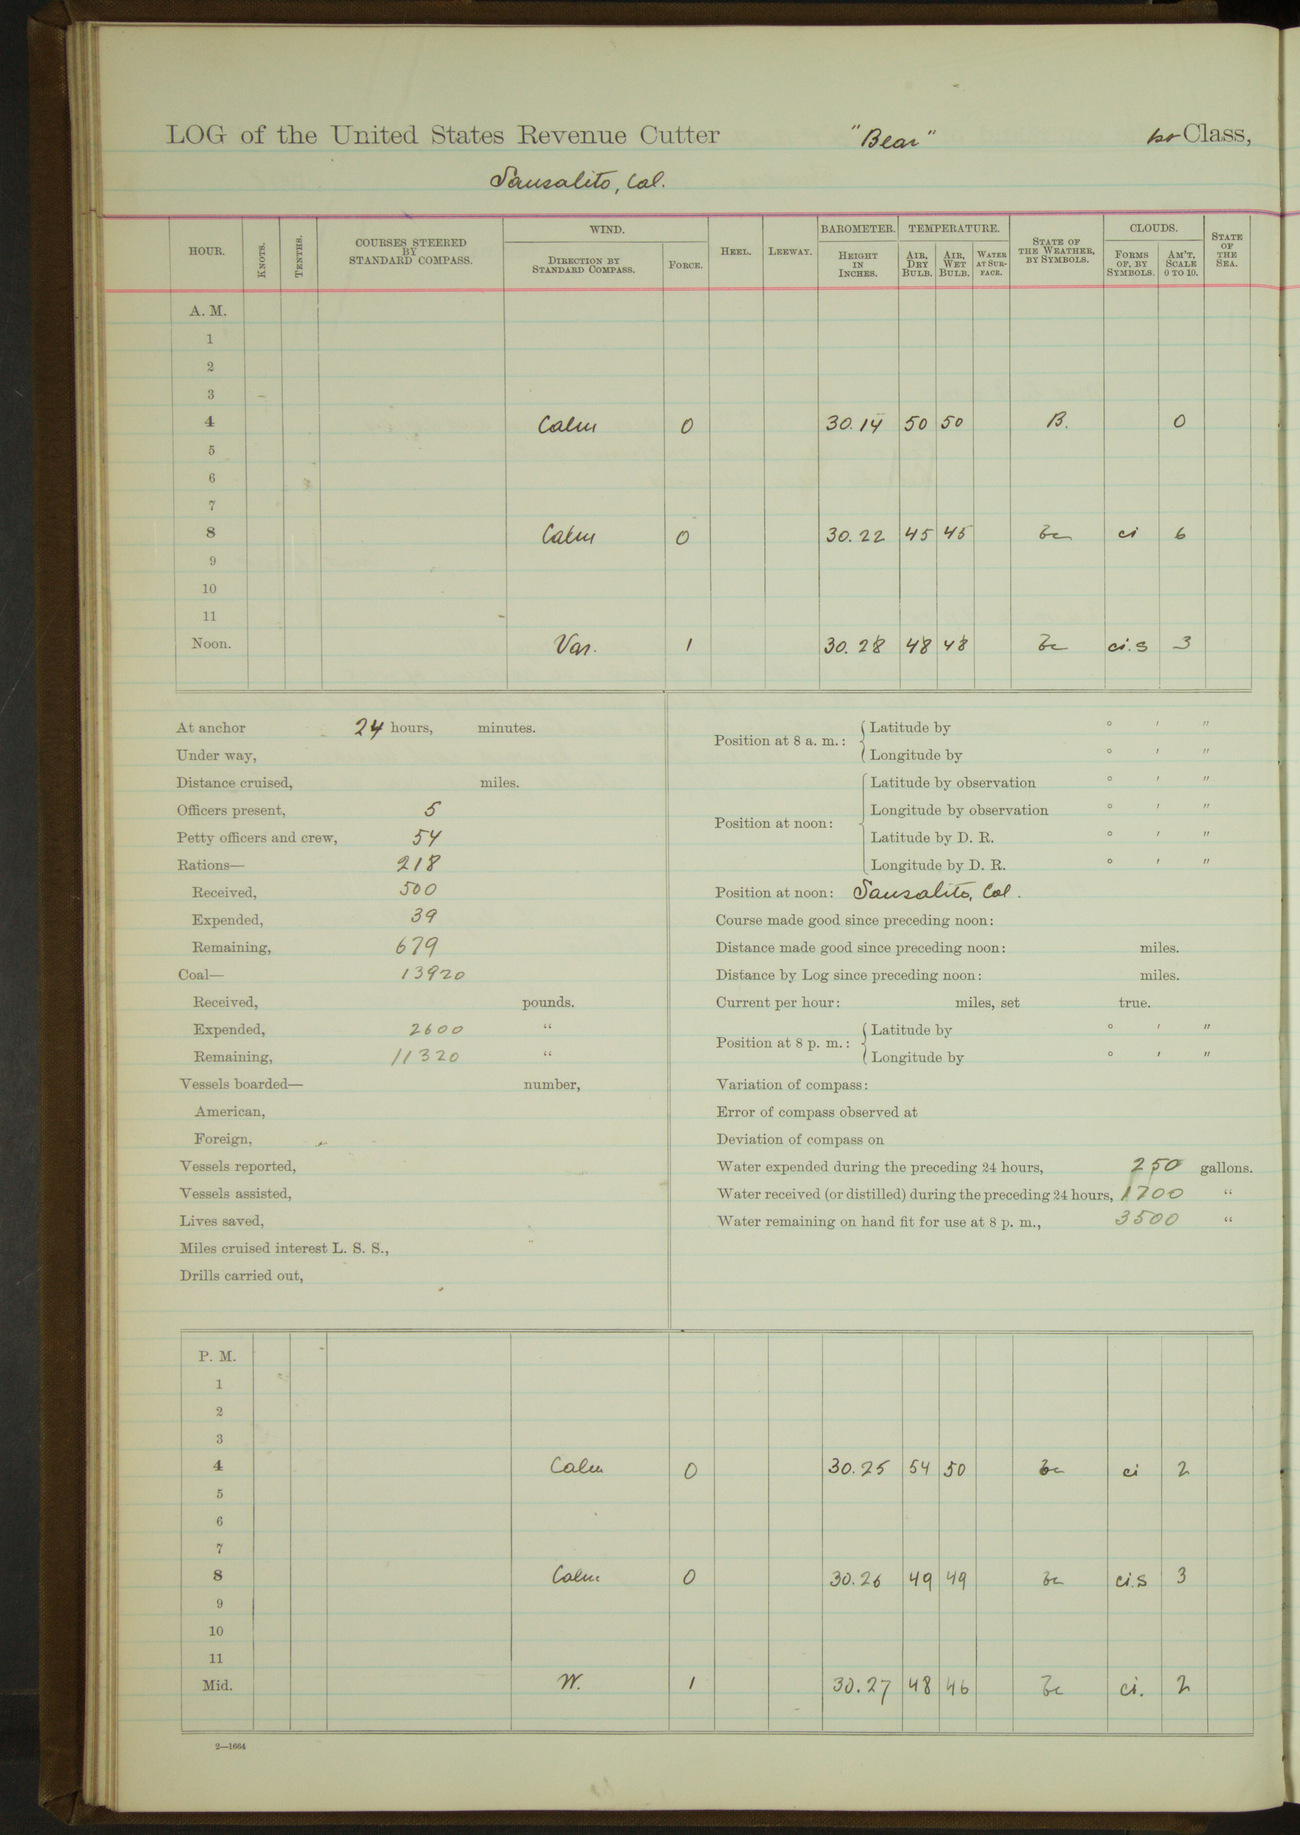 LOG of the United States Revenue Cutter "Bear" 1st Class,
Sausalito, Cal.
HOUR. KNOTS. TENTHS. COURSES STEERED BY STANDARD COMPASS. WIND. DIRECTION BY STANDARD COMPASS. FORCE. HEEL. LEEWAY. BAROMETER. HEIGHT IN INCHES. TEMPERATURE. AIR, DRY BULB. AIR, WET BULB. WATER AT SURFACE. STATE OF THE WEATHER, BY SYMBOLS. CLOUDS. FORMS OF, BY SYMBOLS. AM'T, SCALE 0 TO 10. STATE OF THE SEA.
A. M.
1
2
3
4 Calm 0 30.14 50 50 B. 0
5
6
7
8 Calm 0 30.22 45 45 bc ci 6
9
10
11
Noon. Var. 1 30.28 48 48 bc ci.s 3
At anchor 24 hours, minutes.
Under way,
Distance cruised, miles.
Officers present, 5
Petty officers and crew, 54
Rations— 218
Received, 500
Expended, 39
Remaining, 679
Coal— 13920
Received, pounds.
Expended, 2600 "
Remaining, 11320 "
Vessels boarded— number,
American,
Foreign,
Vessels reported,
Vessels assisted,
Lives saved,
Miles cruised interest L. S. S.,
Drills carried out,
Position at 8 a. m.: Latitude by ° ′ ″
Longitude by ° ′ ″
Position at noon: Latitude by observation ° ′ ″
Longitude by observation ° ′ ″
Latitude by D. R. ° ′ ″
Longitude by D. R. ° ′ ″
Position at noon: Sausalito, Cal.
Course made good since preceding noon:
Distance made good since preceding noon: miles.
Distance by Log since preceding noon: miles.
Current per hour: miles, set true.
Position at 8 p. m.: Latitude by ° ′ ″
Longitude by ° ′ ″
Variation of compass:
Error of compass observed at
Deviation of compass on
Water expended during the preceding 24 hours, 250 gallons.
Water received (or distilled) during the preceding 24 hours, 1700 "
Water remaining on hand fit for use at 8 p. m., 3500 "
P. M.
1
2
3
4 Calm 0 30.25 54 50 bc ci 2
5
6
7
8 Calm 0 30.26 49 49 bc ci.s 3
9
10
11
Mid. W. 1 30.27 48 46 bc ci. 2
2—1664